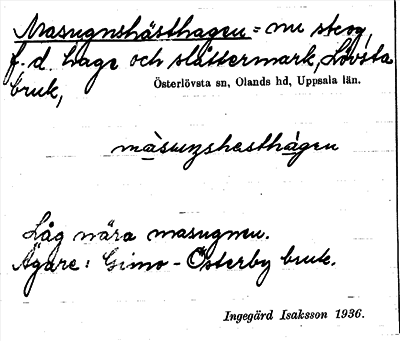 Masugnshästhagen = nu skog,
f. d. hage och slåttermark, Lövsta
bruk,
Österlövsta sn, Olands hd, Uppsala län.
màsuŋshesthágen
Låg nära masugnen.
Ägare: Gimo-Österby bruk.
Ingegärd Isaksson 1936.